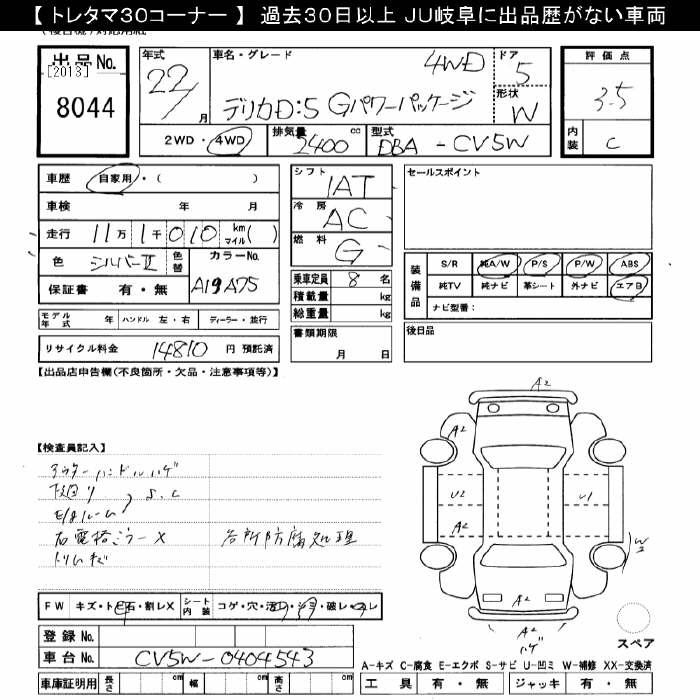 【 トレタマ30コーナー 】 過去30日以上 JU岐阜に出品歴がない車両
出品No.
[2013]
8044
年式
22/
月
車名・グレード
4WD
デリカD:5 Gパワーパッケージ
ドア
5
形状
W
評価点
3.5
内装
C
2WD・4WD
排気量 2400 cc
型式 DBA - CV5W
車歴 自家用・( )
車検 年 月
走行 11万 1千 010 km マイル( )
色 シルバーII 色替
カラーNo.
A19 A75
保証書 有・無
シフト IAT
冷房 AC
燃料 G
乗車定員 8 名
積載量 kg
総重量 kg
セールスポイント
装備品
S/R 純A/W P/S P/W ABS
純TV 純ナビ 革シート 外ナビ エアB
ナビ型番:
モデル年式 年 ハンドル 左・右 ディーラー・並行
リサイクル料金 14810 円 預託済
書類期限
月 日
後日品
【出品店申告欄(不良箇所・欠品・注意事項等)】
【検査員記入】
アウターハンドルハゲ
下回り
S.C
E/gルーム
右電格ミラーX
各所防腐処理
A2
A2
U2
U1
A2
W2
A2
A2
ハゲ
FW キズ・トビ石・割レX シート内装 コゲ・穴・汚レ・シミ・破レ・スレ
登録No.
車台No. CV5W-0404543
車庫証明用 長さ cm 幅 cm 高さ cm
スペア
A-キズ C-腐食 E-エクボ S-サビ U-凹ミ W-補修 XX-交換済
工具 有・無 ジャッキ 有・無